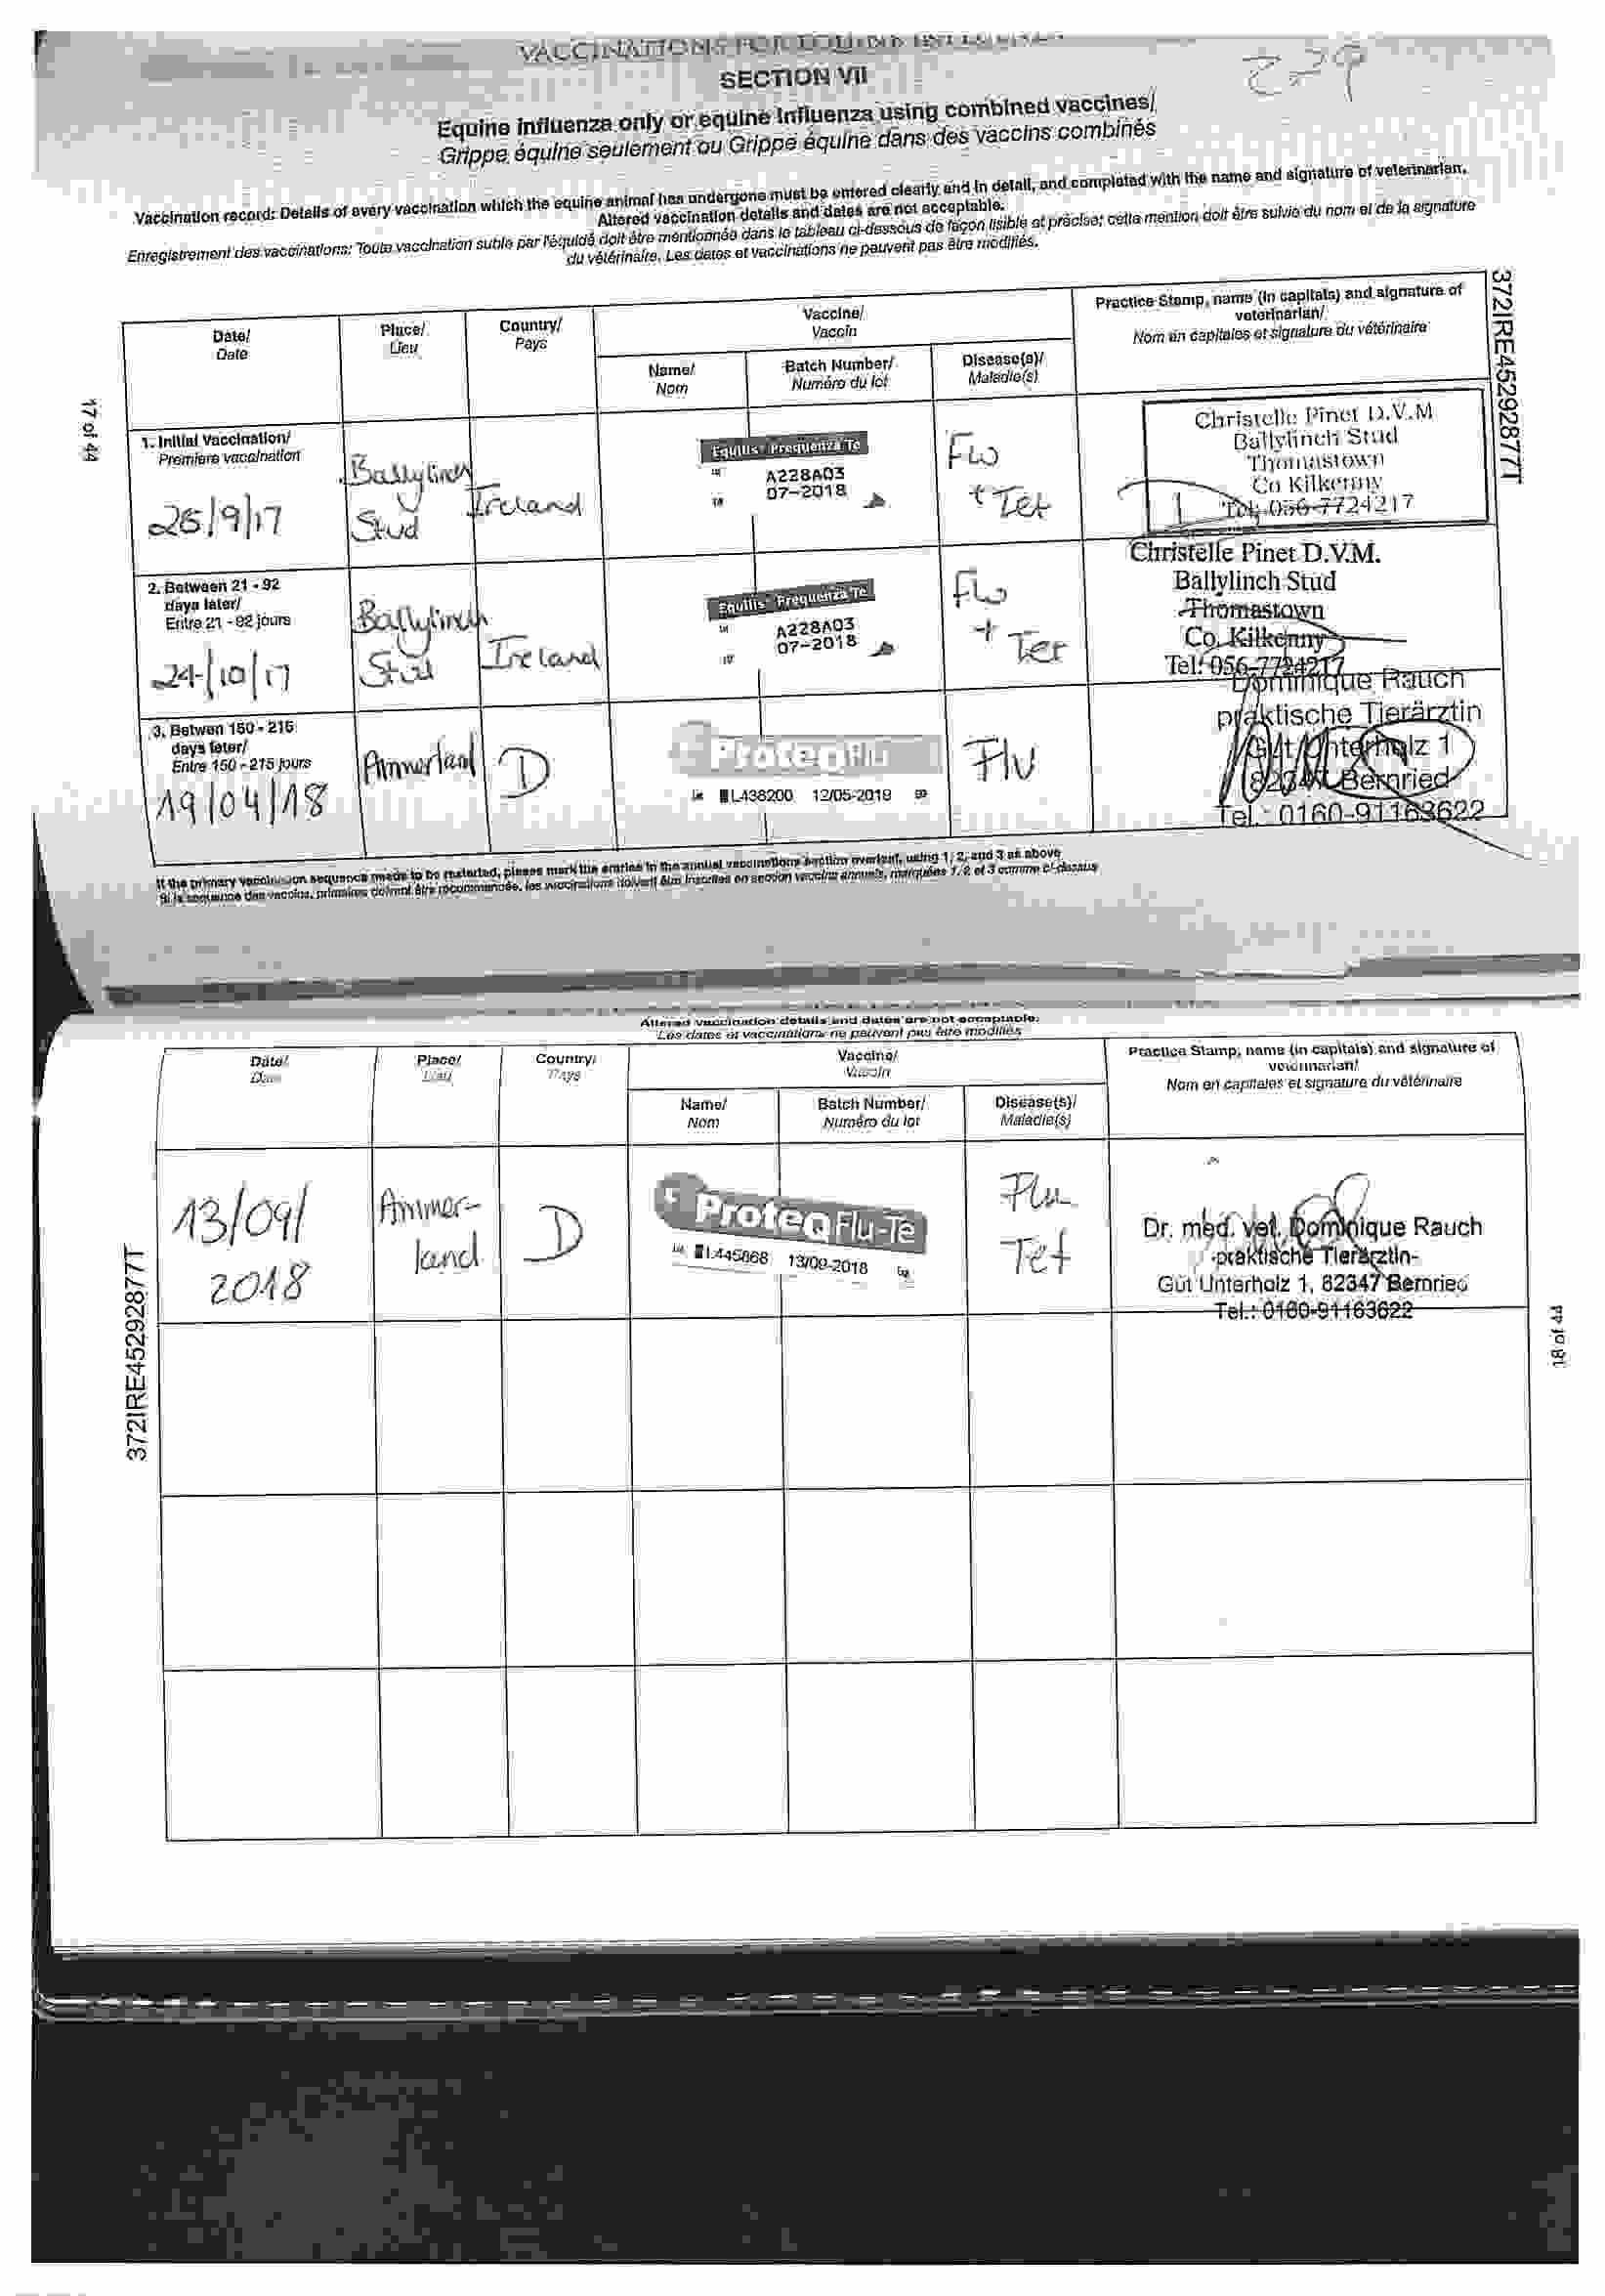 SECTION VII
Equine influenza only or equine influenza using combined vaccines/
Grippe équine seulement ou Grippe équine dans des vaccins combinés
Vaccination record: Details of every vaccination which the equine animal has undergone must be entered clearly and in detail, and completed with the name and signature of veterinarian.
Altered vaccination details and dates are not acceptable.
Enregistrement des vaccinations: Toute vaccination subie par l'équidé doit être mentionnée dans le tableau ci-dessous de façon lisible et précise; cette mention doit être suivie du nom et de la signature
du vétérinaire. Les dates et vaccinations ne peuvent pas être modifiés.
372IRE45292877T
17 of 44
Date/
Date
Place/
Lieu
Country/
Pays
Vaccine/
Vaccin
Name/
Nom
Batch Number/
Numéro du lot
Disease(s)/
Maladie(s)
Practice Stamp, name (in capitals) and signature of
veterinarian/
Nom en capitales et signature du vétérinaire
1. Initial Vaccination/
Premiere vaccination
/9/17
Ballylinch
Stud
Ireland
Equilis Prequenza Te
A228A03
07-2018
Flu
+ Tet
Christelle Pinet D.V.M
Ballylinch Stud
Thomastown
Co Kilkenny
Tel: 056-7724217
2. Between 21 - 92
days later/
Entre 21 - 92 jours
24/10/17
Ballylinch
Stud
Ireland
Equilis Prequenza Te
A228A03
07-2018
Flu
+ Tet
Christelle Pinet D.V.M.
Ballylinch Stud
Thomastown
Co. Kilkenny
Tel: 056-7724217
3. Betwen 150 - 215
days later/
Entre 150 - 215 jours
19/04/18
Ammerland
D
ProteqFlu
L438200 12/05-2018
Flu
Dominique Rauch
praktische Tierärztin
Gut Unterholz 1
82347 Bernried
Tel.: 0160-91163622
If the primary vaccination sequence needs to be restarted, please mark the entries in the annual vaccinations section overleaf, using 1, 2, and 3 as above
Altered vaccination details and dates are not acceptable.
Les dates et vaccinations ne peuvent pas être modifiés
Date/
Date
Place/
Lieu
Country/
Pays
Vaccine/
Vaccin
Name/
Nom
Batch Number/
Numéro du lot
Disease(s)/
Maladie(s)
Practice Stamp, name (in capitals) and signature of
veterinarian/
Nom en capitales et signature du vétérinaire
13/09/
2018
Ammer-
land
D
ProteqFlu-Te
L445868 13/09-2018
Flu
Tet
Dr. med. vet. Dominique Rauch
-praktische Tierärztin-
Gut Unterholz 1, 82347 Bernried
Tel.: 0160-91163622
372IRE45292877T
18 of 44